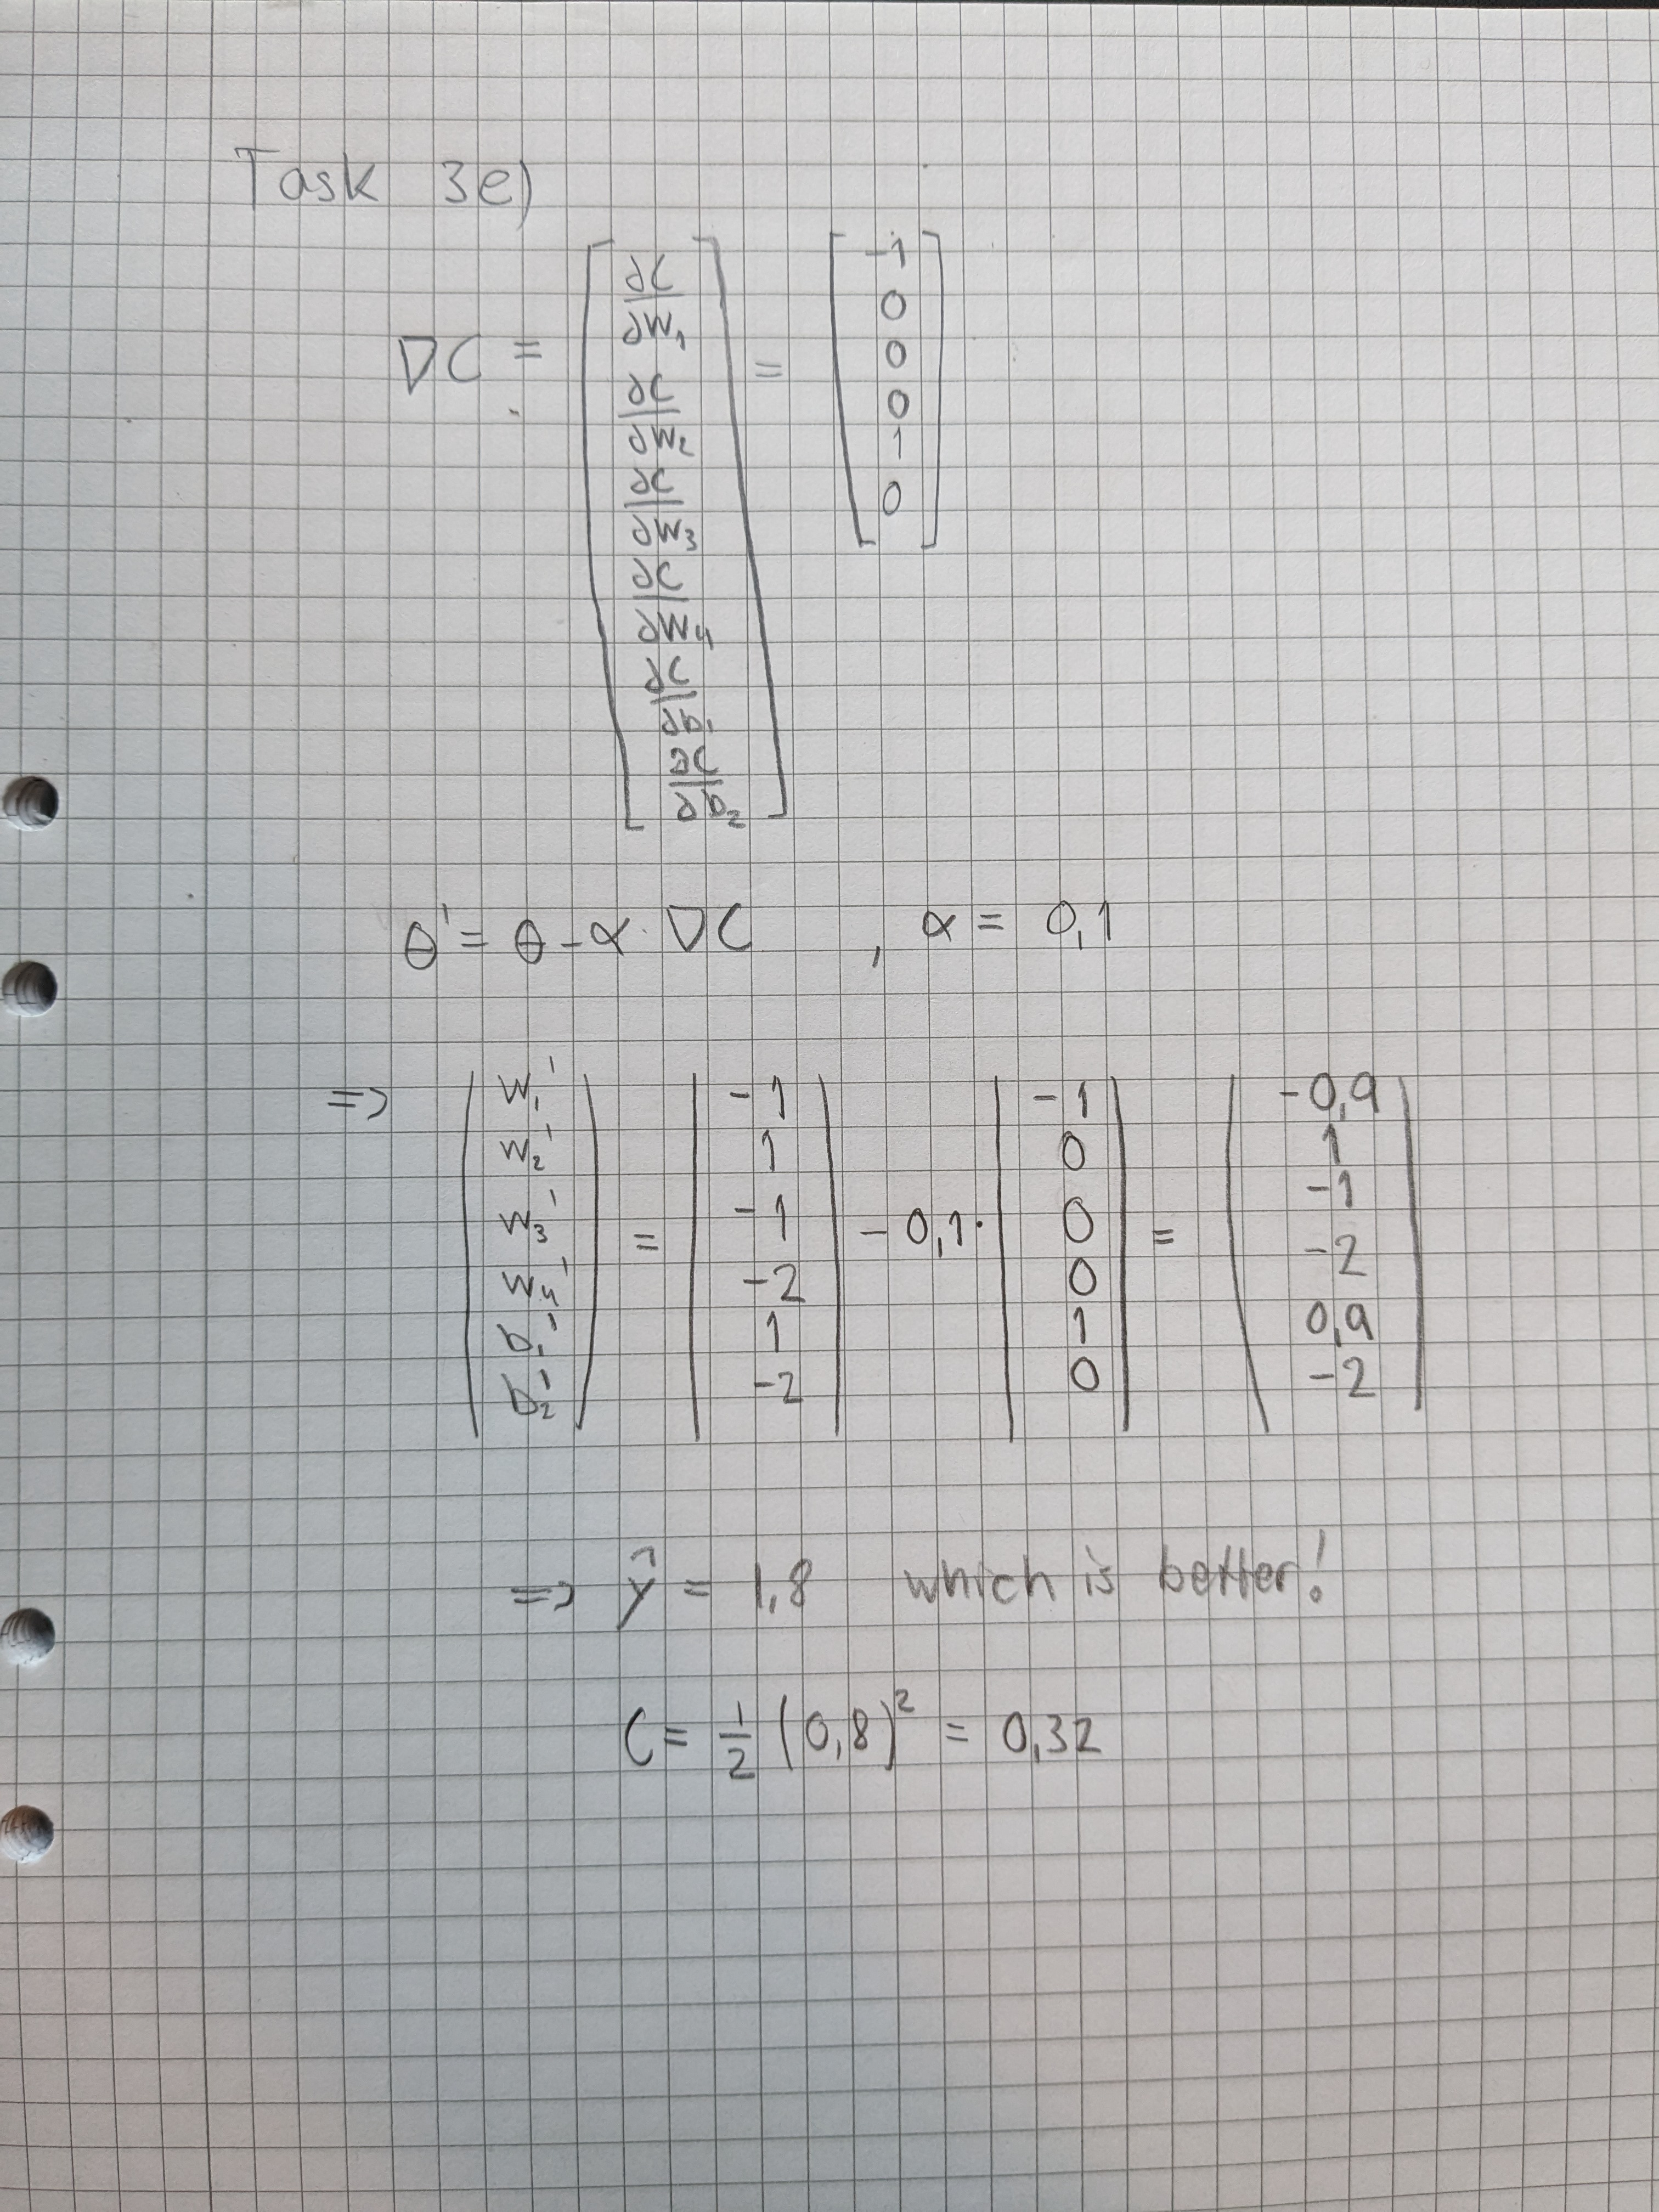 Task 3e)
∇C = [ ∂C/∂W₁ ∂C/∂W₂ ∂C/∂W₃ ∂C/∂W₄ ∂C/∂b₁ ∂C/∂b₂ ] = [ -1 0 0 0 1 0 ]
θ' = θ - α · ∇C , α = 0,1
=> | W₁' W₂' W₃' W₄' b₁' b₂' | = | -1 1 -1 -2 1 -2 | - 0,1 · | -1 0 0 0 1 0 | = | -0,9 1 -1 -2 0,9 -2 |
=> ŷ = 1,8 which is better!
C = 1/2 (0,8)² = 0,32